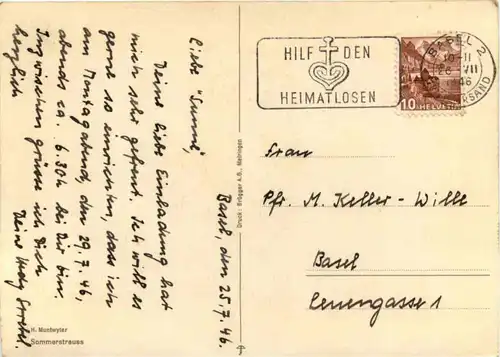 Basel, den 25.7.46.
Liebe "Sunne",
Deine liebe Einladung hat
mich sehr gefreut. Ich will es
gerne so einrichten, dass ich
am Montagabend, den 29.7.46,
abends ca. 6.30h bei Dir bin.
Inzwischen grüsse ich Dich
herzlich
Deine Hedy
H. Muntwyler
Sommerstrauss
Druck: Brügger A.G., Meiringen
HILF DEN
HEIMATLOSEN
BASEL 2
10-11
VII
46
10 HELVETIA
Frau
Pfr. M. Keller-Wille
Basel
Leuengasse 1